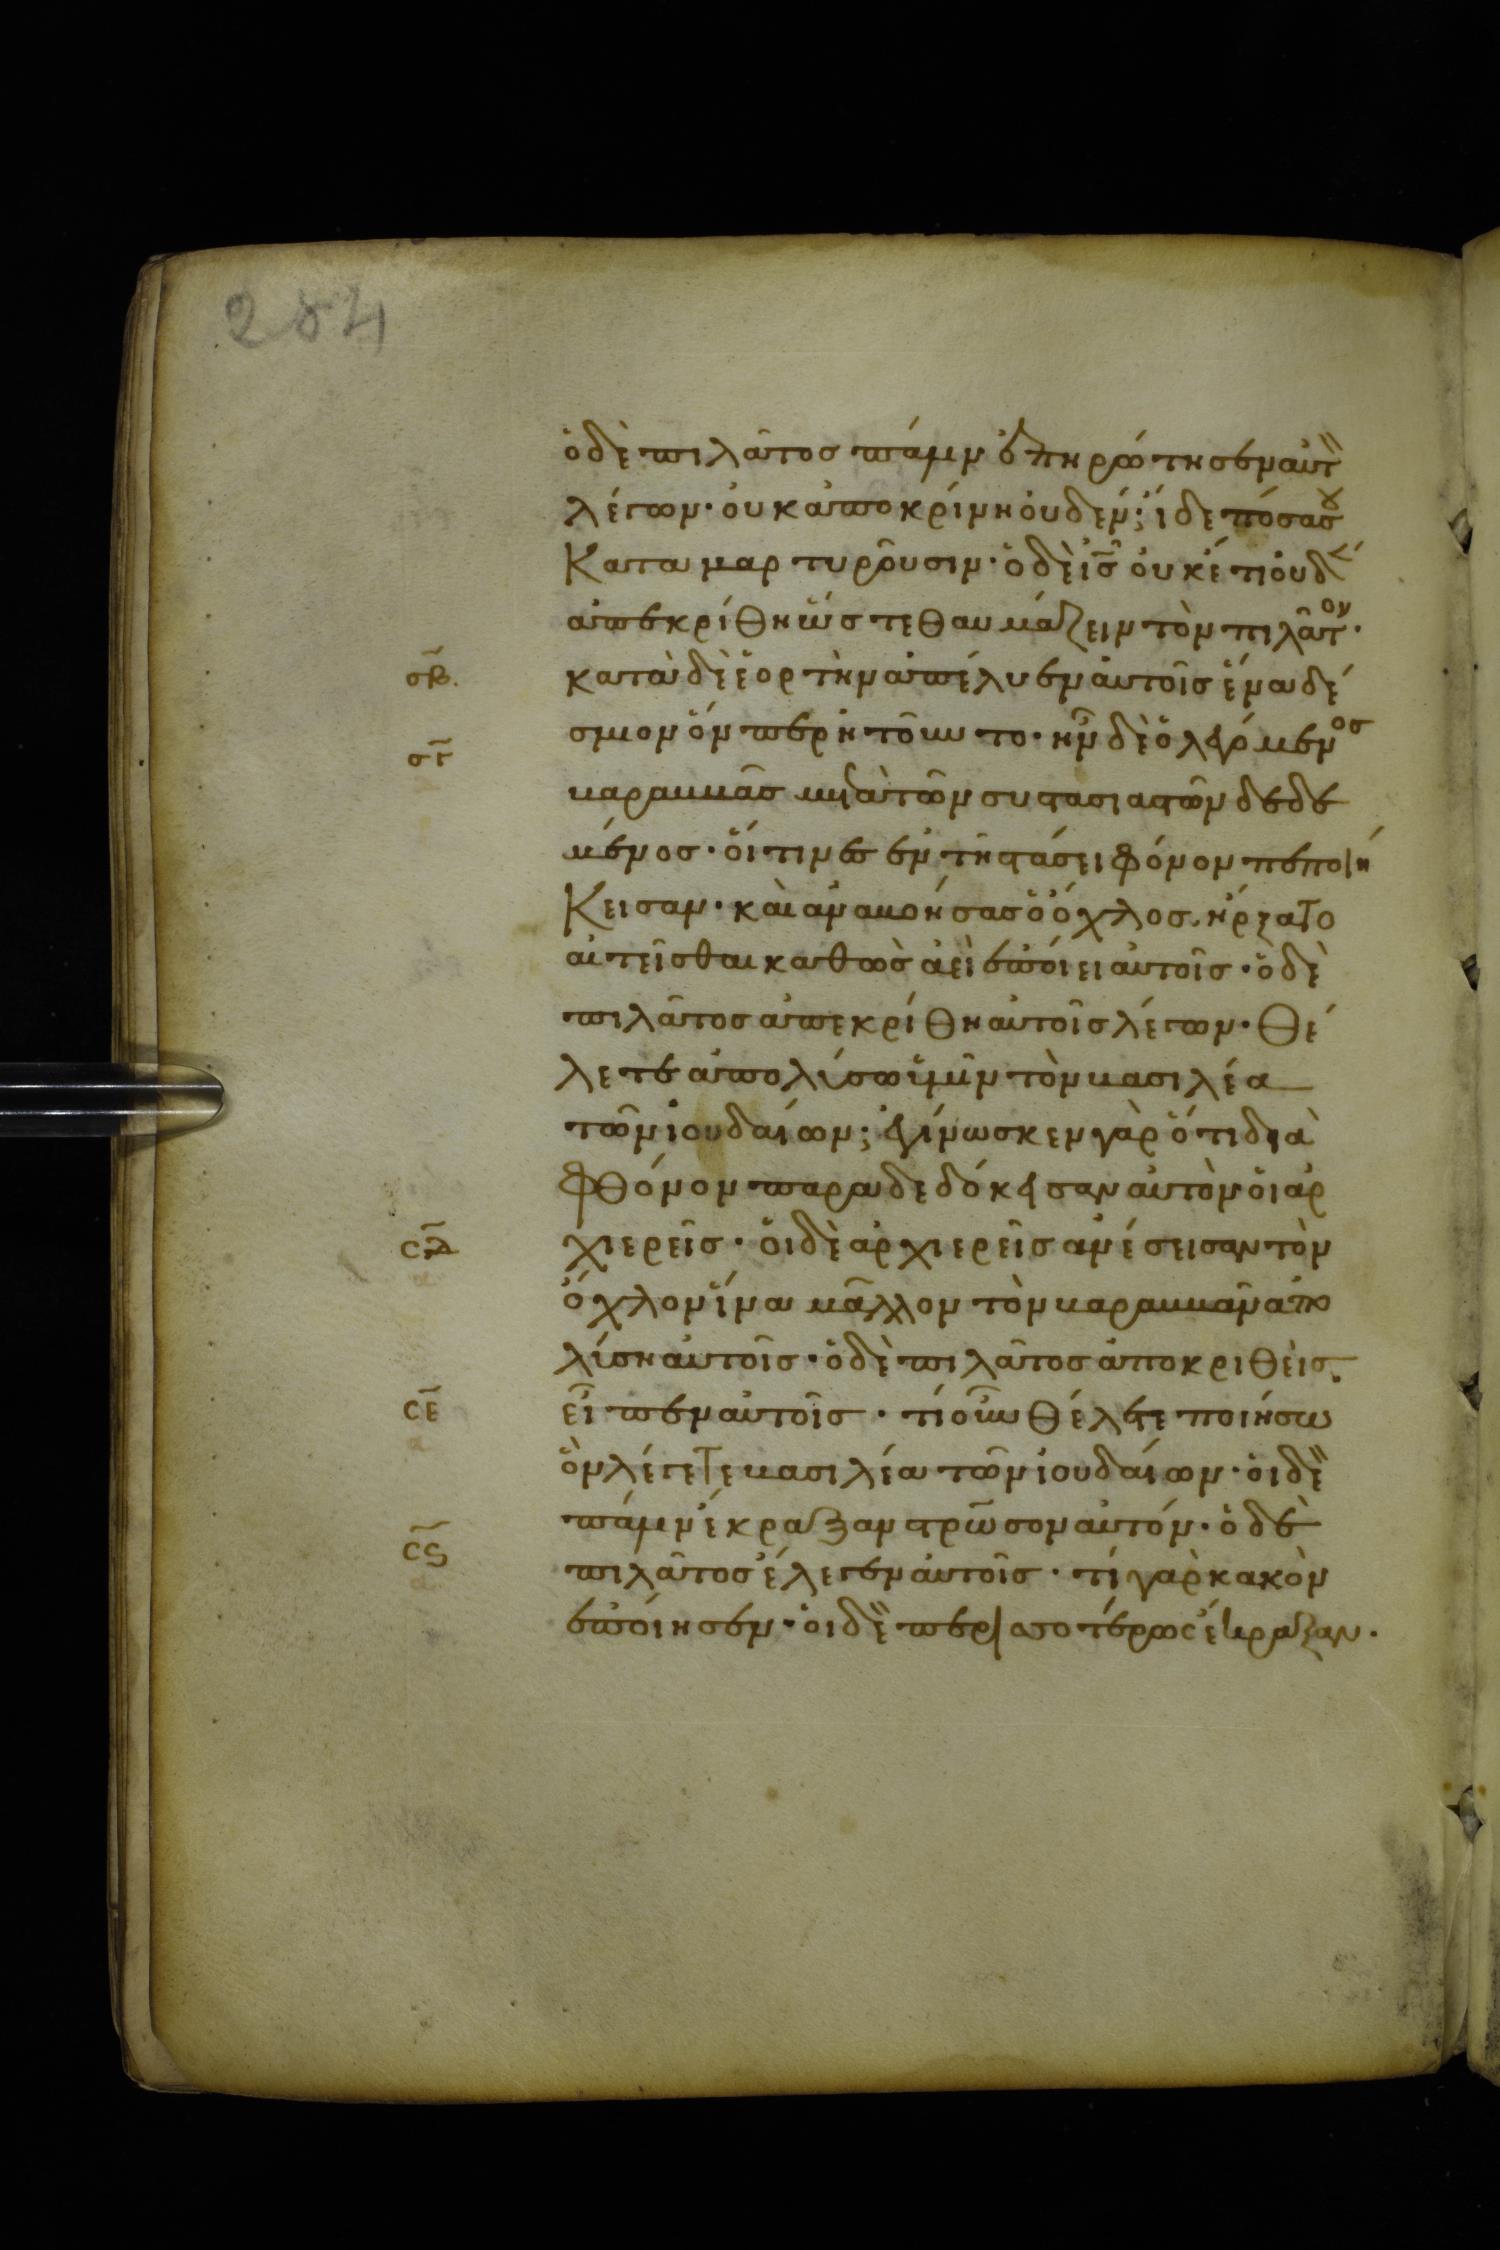 284
ὁ δὲ πιλᾶτος πάλιν ἐπηρώτησεν αὐτ
λέγων· οὐκ ἀποκρίνη οὐδέν; ἴδε πόσα σου
καταμαρτυροῦσιν· ὁ δὲ ις οὐκέτι οὐδὲ
ἀπεκρίθη ὥστε θαυμάζειν τὸν πιλᾶτον·
σβ. κατὰ δὲ ἑορτὴν ἀπέλυεν αὐτοῖς ἕνα δέ
σμιον ὅνπερ ἠτοῦντο· ἦν δὲ ὁ λεγόμενος
σγ βαραββᾶς μετὰ τῶν συστασιαστῶν δεδε
μένος· οἵτινες ἐν τῆ στάσει φόνον πεποιή
κεισαν· καὶ ἀναβοήσας ὁ ὄχλος ἤρξατο
αἰτεῖσθαι καθὼς ἀεὶ ἐποίει αὐτοῖς· ὁ δὲ
πιλᾶτος ἀπεκρίθη αὐτοῖς λέγων· θέ
λετε ἀπολύσω ὑμῖν τὸν βασιλέα
τῶν ἰουδαίων; ἐγίνωσκεν γὰρ ὅτι διὰ
φθόνον παραδεδόκεσαν αὐτὸν οἱ ἀρ
σδ χιερεῖς· οἱ δὲ ἀρχιερεῖς ἀνέσεισαν τὸν
ὄχλον ἵνα μᾶλλον τὸν βαραββᾶν ἀπο
λύση αὐτοῖς· ὁ δὲ πιλᾶτος ἀποκριθεὶς
σε εἶπεν αὐτοῖς· τί οὖν θέλετε ποιήσω
ὃν λέγετε βασιλέα τῶν ἰουδαίων· οἱ δὲ
πάλιν ἔκραξαν στρῶσον αὐτόν· ὁ δὲ
σς πιλᾶτος ἔλεγεν αὐτοῖς· τί γὰρ κακὸν
ἐποίησεν· οἱ δὲ περισσοτέρως ἔκραξαν·